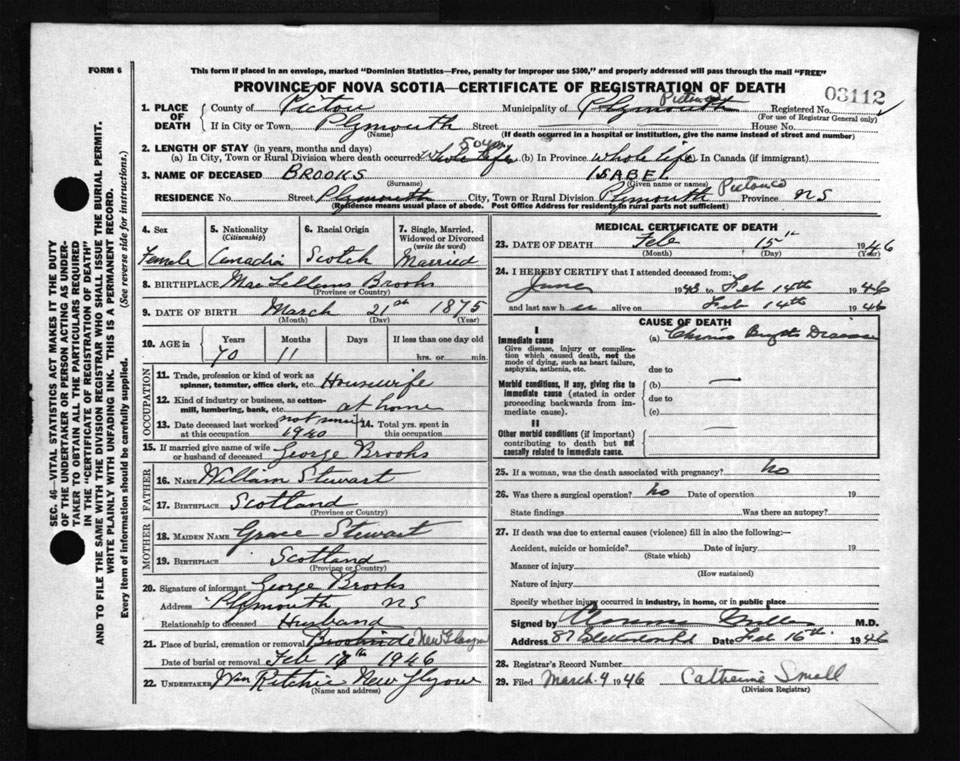 FORM 6
This form if placed in an envelope, marked "Dominion Statistics—Free, penalty for improper use $300," and properly addressed will pass through the mail "FREE"
PROVINCE OF NOVA SCOTIA—CERTIFICATE OF REGISTRATION OF DEATH
03112
SEC. 46—VITAL STATISTICS ACT MAKES IT THE DUTY
OF THE UNDERTAKER OR PERSON ACTING AS UNDER-
TAKER TO OBTAIN ALL THE PARTICULARS REQUIRED
IN THE "CERTIFICATE OF REGISTRATION OF DEATH"
AND TO FILE THE SAME WITH THE DIVISION REGISTRAR WHO SHALL ISSUE THE BURIAL PERMIT.
WRITE PLAINLY WITH UNFADING INK. THIS IS A PERMANENT RECORD.
Every item of information should be carefully supplied. (See reverse side for instructions.)
1. PLACE OF DEATH County of Pictou Municipality of Plymouth Pictou Co Registered No.
(For use of Registrar General only)
If in City or Town Plymouth Street House No.
(Name) (If death occurred in a hospital or institution, give the name instead of street and number)
2. LENGTH OF STAY (in years, months and days)
(a) In City, Town or Rural Division where death occurred Whole Life (b) In Province Whole Life (c) In Canada (if immigrant)
3. NAME OF DECEASED BROOKS ISABEL
(Surname) (Given name or names)
RESIDENCE No. Street Plymouth City, Town or Rural Division Plymouth Pictou Co Province NS
(Residence means usual place of abode. Post Office Address for residents in rural parts not sufficient)
4. Sex Female
5. Nationality (Citizenship) Canadia
6. Racial Origin Scotch
7. Single, Married, Widowed or Divorced (write the word) Married
8. BIRTHPLACE MacLellans Brooks
(Province or Country)
9. DATE OF BIRTH March 21 1875
(Month) (Day) (Year)
10. AGE in Years Months Days If less than one day old
70 11 hrs. or min.
OCCUPATION
11. Trade, profession or kind of work as spinner, teamster, office clerk, etc. Housewife
12. Kind of industry or business, as cotton-mill, lumbering, bank, etc. at home
13. Date deceased last worked at this occupation not since 1940
14. Total yrs. spent in this occupation
15. If married give name of wife or husband of deceased George Brooks
FATHER
16. NAME William Stewart
17. BIRTHPLACE Scotland
(Province or Country)
MOTHER
18. MAIDEN NAME Grace Stewart
19. BIRTHPLACE Scotland
(Province or Country)
20. Signature of informant George Brooks
Address Plymouth NS
Relationship to deceased Husband
21. Place of burial, cremation or removal Brookside New Glasgow
Date of burial or removal Feb 1946
22. UNDERTAKER Wm Ritchie New Glasgow
(Name and address)
MEDICAL CERTIFICATE OF DEATH
23. DATE OF DEATH Feb 15th 1946
(Month) (Day) (Year)
24. I HEREBY CERTIFY that I attended deceased from:
June 1943 to Feb 14th 1946
and last saw her alive on Feb 14th 1946
CAUSE OF DEATH
I
Immediate cause
Give disease, injury or complication which caused death, not the mode of dying, such as heart failure, asphyxia, asthenia, etc.
(a) Chronic Bright Disease
due to
Morbid conditions, if any, giving rise to immediate cause (stated in order proceeding backwards from immediate cause).
(b) —
due to
(c)
II
Other morbid conditions (if important) contributing to death but not causally related to immediate cause.
25. If a woman, was the death associated with pregnancy? no
26. Was there a surgical operation? no Date of operation 19
State findings Was there an autopsy?
27. If death was due to external causes (violence) fill in also the following:—
Accident, suicide or homicide? Date of injury 19
(State which)
Manner of injury
(How sustained)
Nature of injury
Specify whether injury occurred in industry, in home, or in public place
Signed by Clarence Miller M.D.
Address 87 Date Feb 16th 1946
28. Registrar's Record Number
29. Filed March 4 1946 Catherine Small
(Division Registrar)